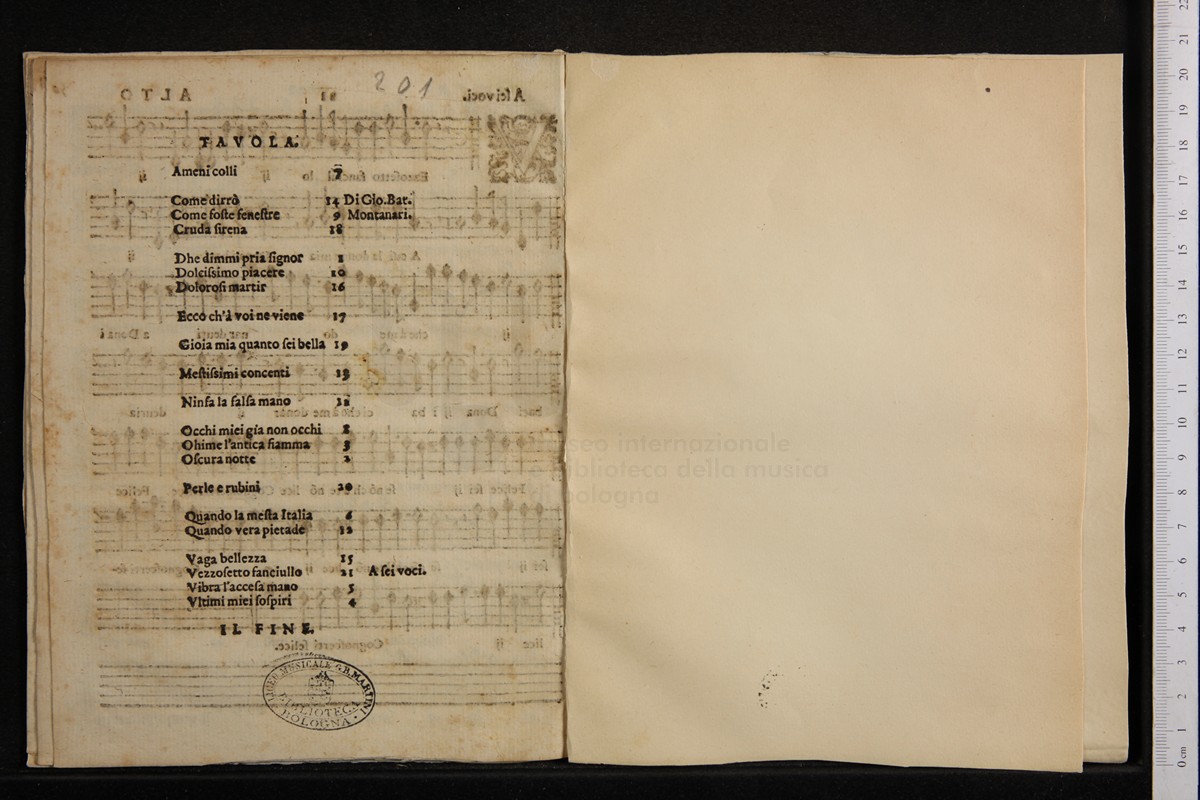 201
TAVOLA.
Ameni colli 7
Come dirrò 14 Di Gio. Bat.
Come foſte feneſtre 9 Montanari.
Cruda ſirena 18
Dhe dimmi pria ſignor 1
Dolciſsimo piacere 10
Doloroſi martir 16
Ecco ch'à voi ne viene 17
Gioia mia quanto ſei bella 19
Meſtiſsimi concenti 13
Ninfa la falſa mano
Occhi miei gia non occhi 8
Ohime l'antica fiamma 3
Oſcura notte 2
Perle e rubini 20
Quando la meſta Italia 6
Quando vera pietade 12
Vaga bellezza 15
Vezzoſetto fanciullo 21 A ſei voci.
Vibra l'acceſa mano 5
Vltimi miei ſoſpiri 4
IL FINE.
LICEO MUSICALE G.B. MARTINI
BIBLIOTECA
BOLOGNA
museo internazionale
e biblioteca della musica
di bologna
0 cm 1 2 3 4 5 6 7 8 9 10 11 12 13 14 15 16 17 18 19 20 21 22